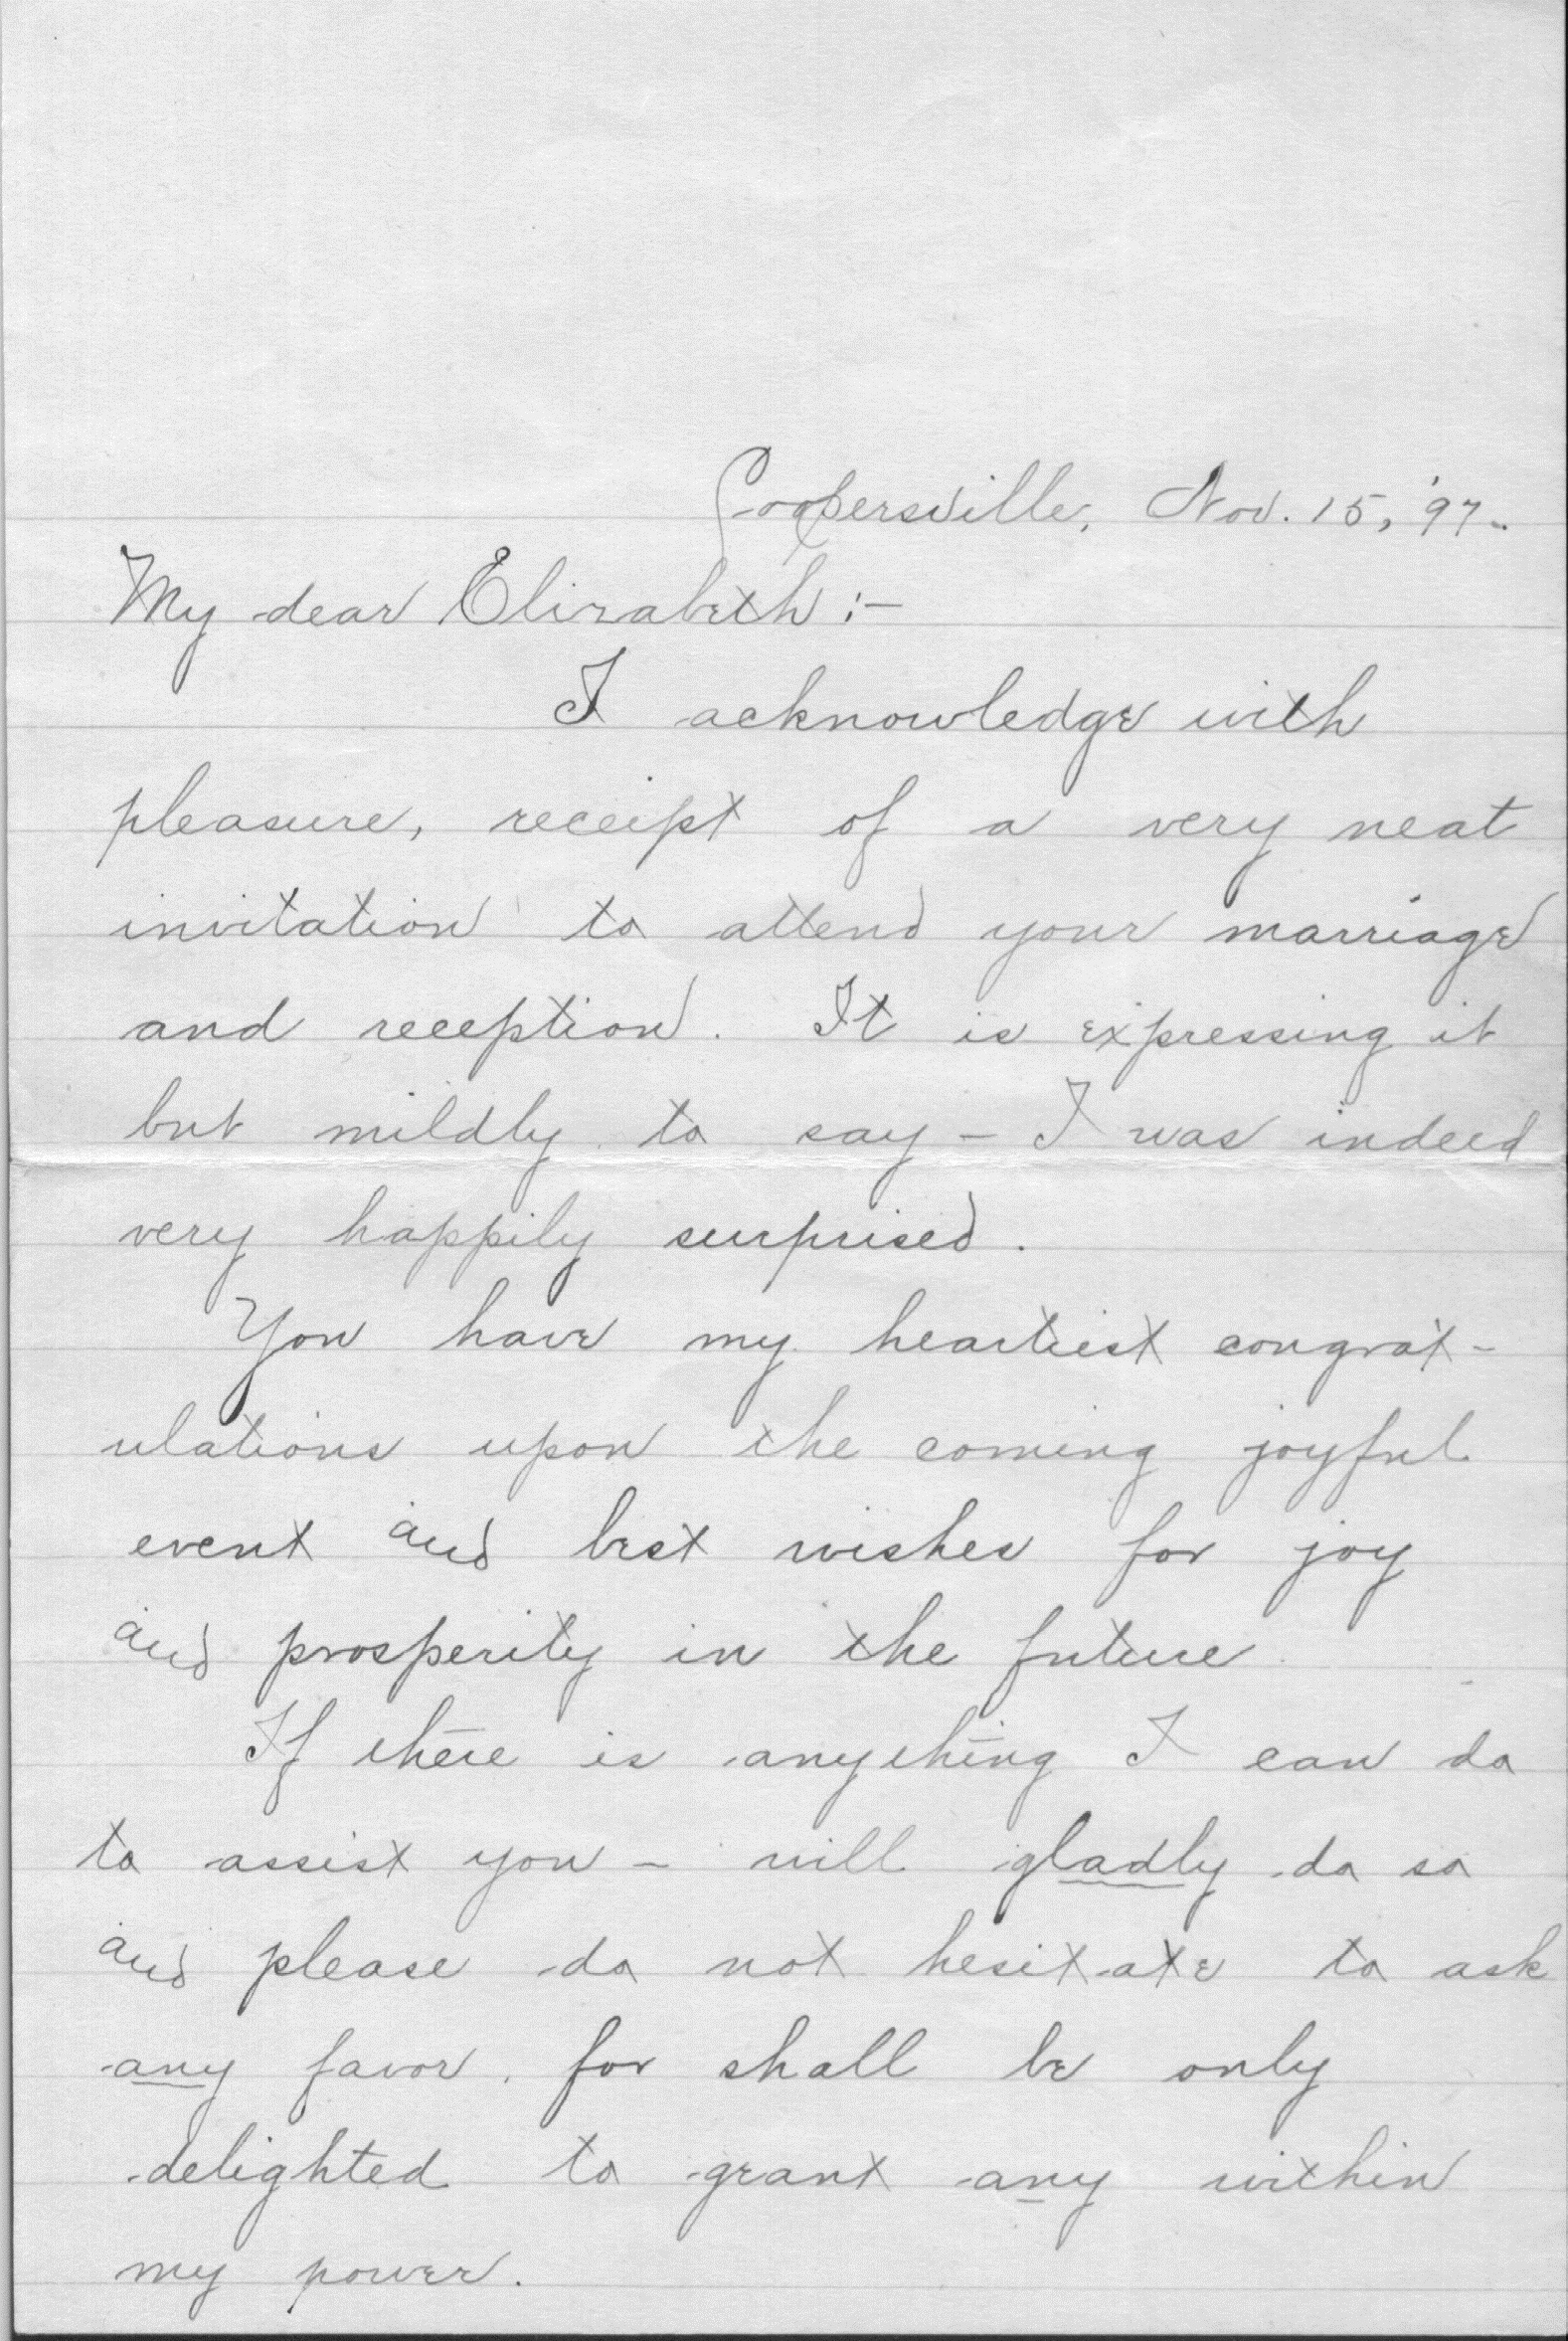 Coopersville, Nov. 15, '97.
My dear Elizabeth:-
I acknowledge with
pleasure, receipt of a very neat
invitation to attend your marriage
and reception. It is expressing it
but mildly to say - I was indeed
very happily surprised.
You have my heartiest congrat-
ulations upon the coming joyful
event and best wishes for joy
and prosperity in the future
If there is anything I can do
to assist you - will gladly do so
and please do not hesitate to ask
any favor, for shall be only
delighted to grant any within
my power.